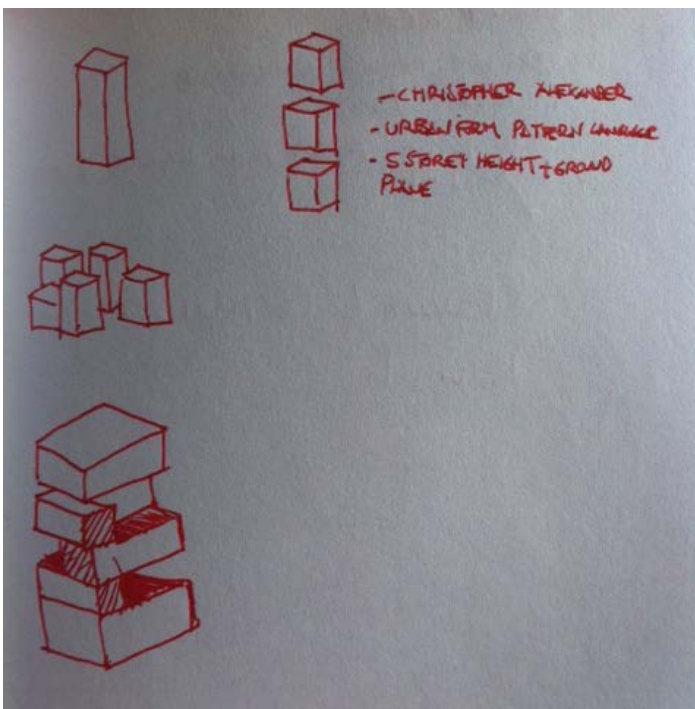 - CHRISTOPHER ALEXANDER
- URBAN FORM, PATTERN LANGUAGE
- 5 STOREY HEIGHT + GROUND
PLANE